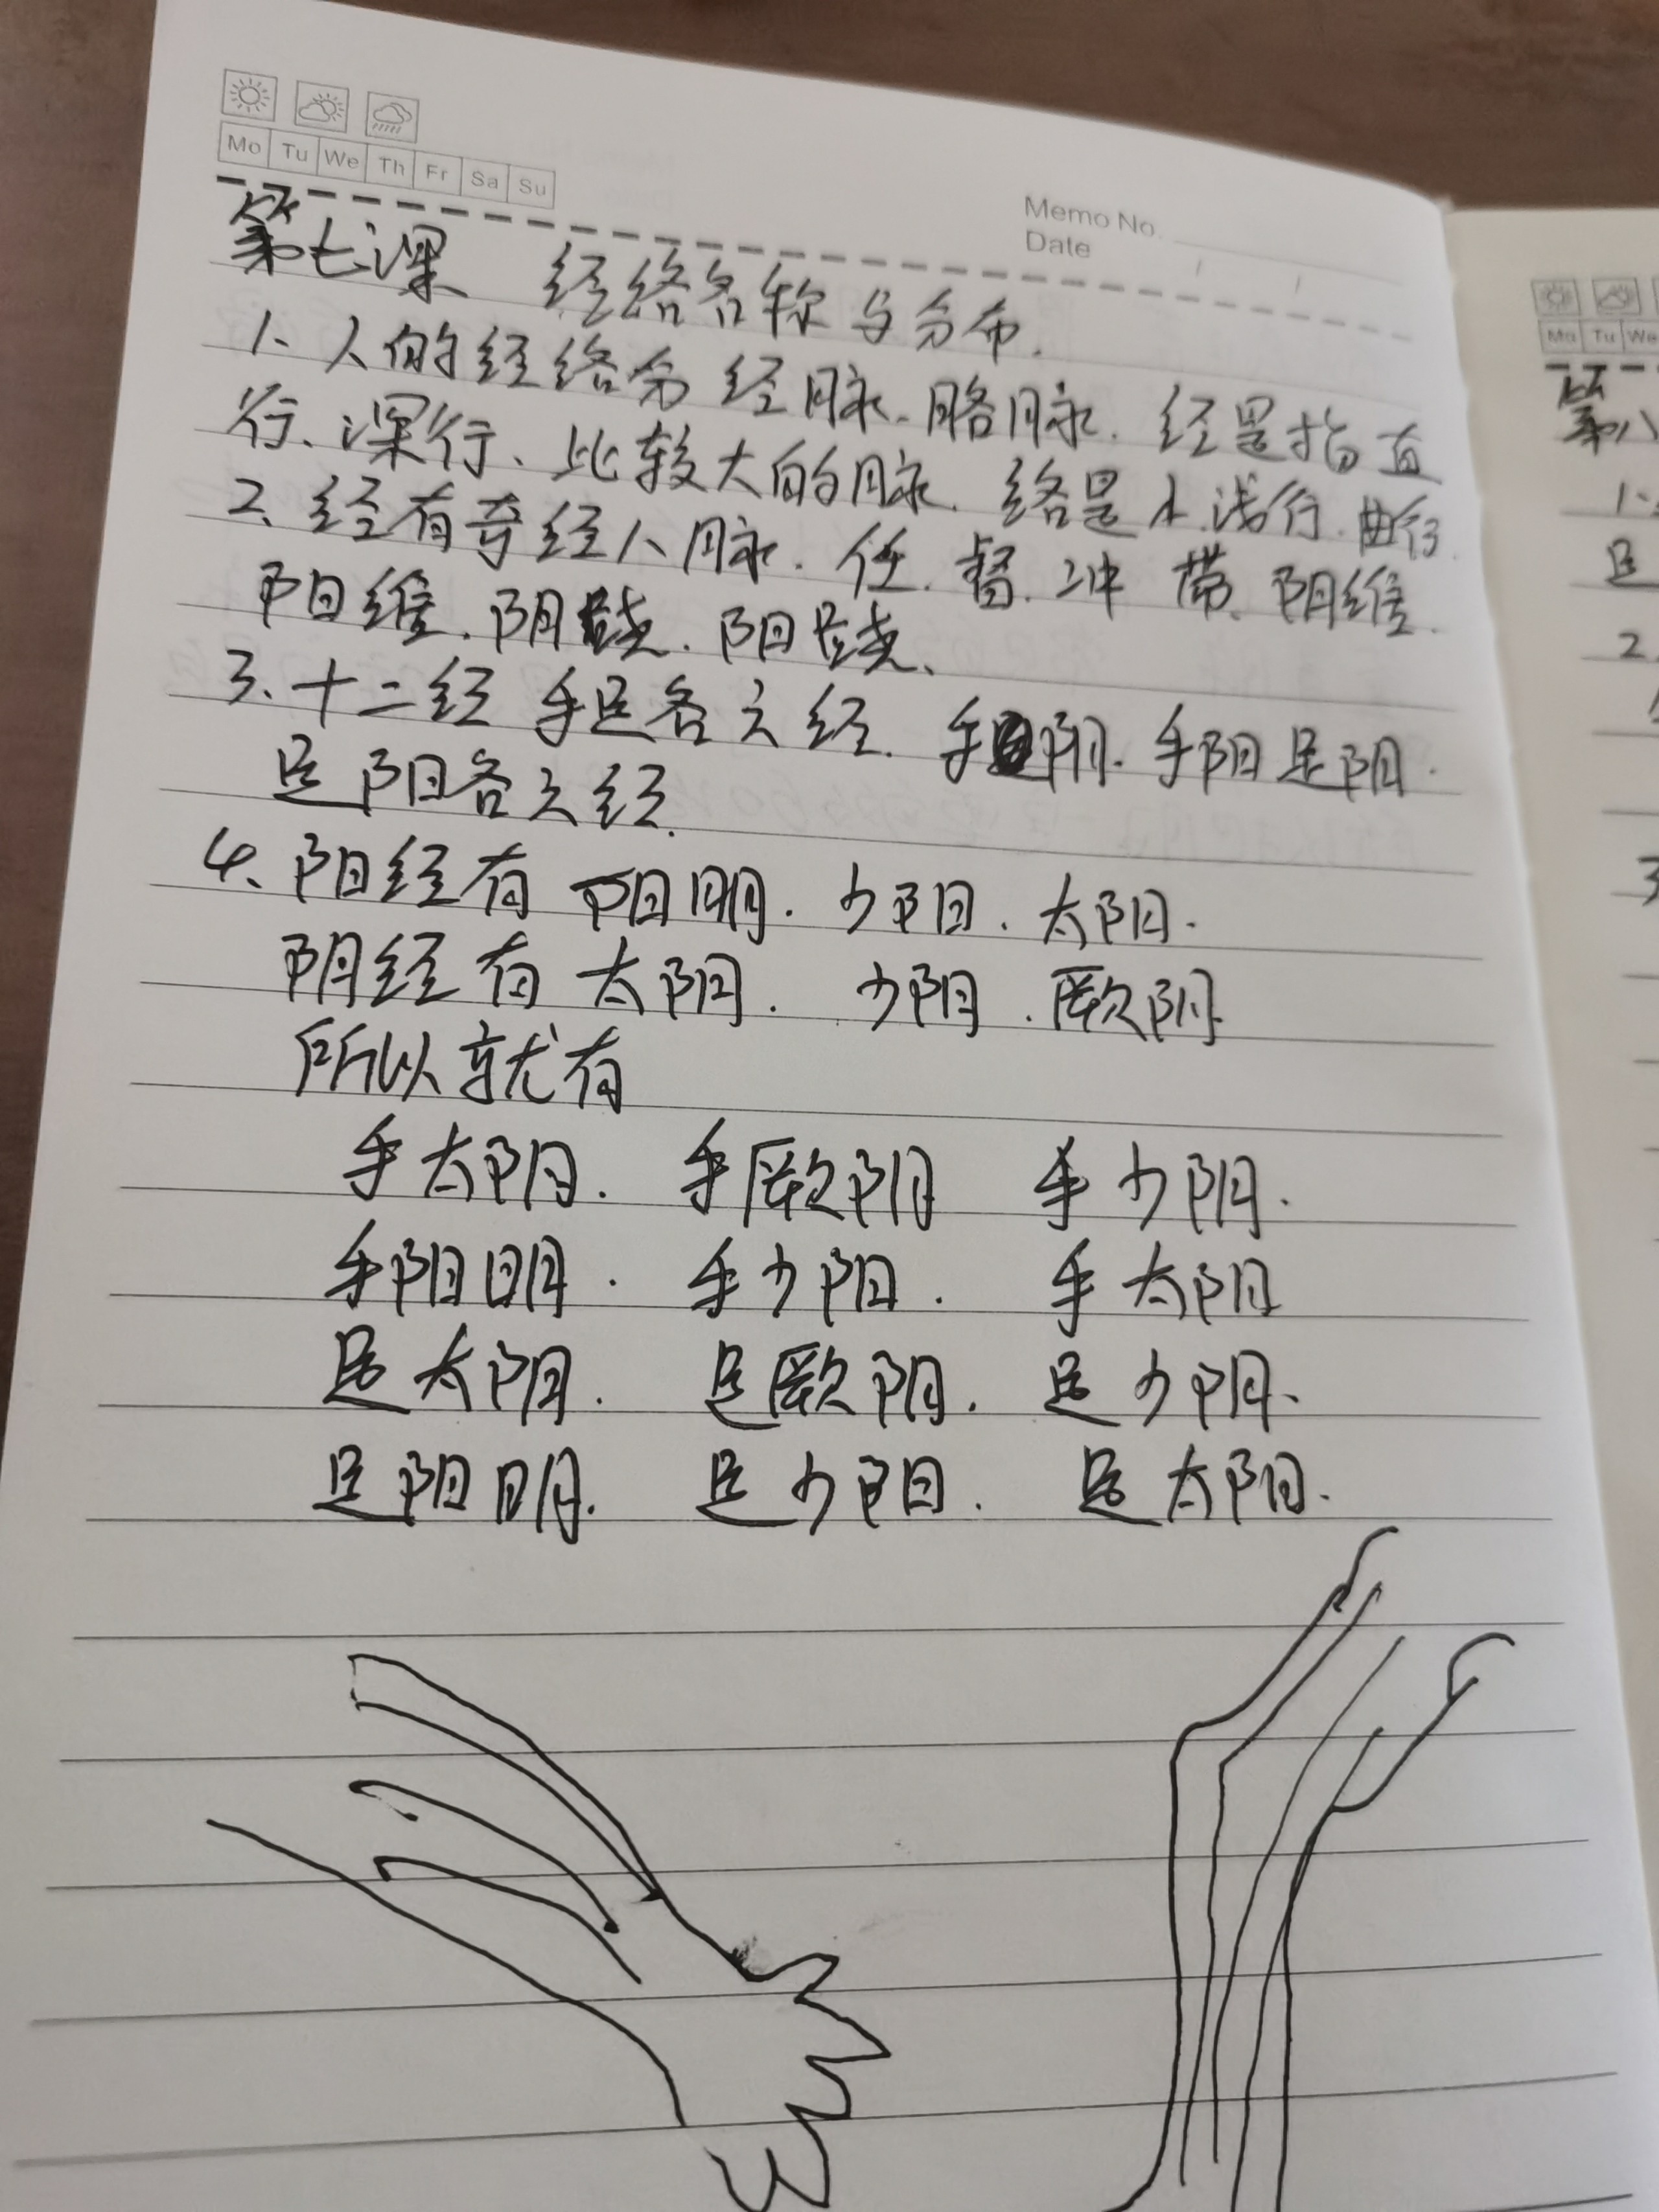 Mo Tu We Th Fr Sa Su
Memo No.
Date
第七课 经络名称与分布.
1、人的经络分经脉.胳脉. 经是指直
行、深行、比较大的脉. 络是小.浅行.曲行.
2、经有奇经八脉. 任.督.冲 带.阴维.
阳维.阴跷.阳跷、
3、十二经 手足各六经. 手阴.手阳足阴.
足阳各六经.
4、阳经有 阳明.少阳.太阳.
阴经有 太阴. 少阴.厥阴.
所以就有
手太阴. 手厥阴 手少阴.
手阳明. 手少阳. 手太阳
足太阴. 足厥阴. 足少阴.
足阳明. 足少阳. 足太阳.
Mo Tu We
第八
1、
足
2.
3